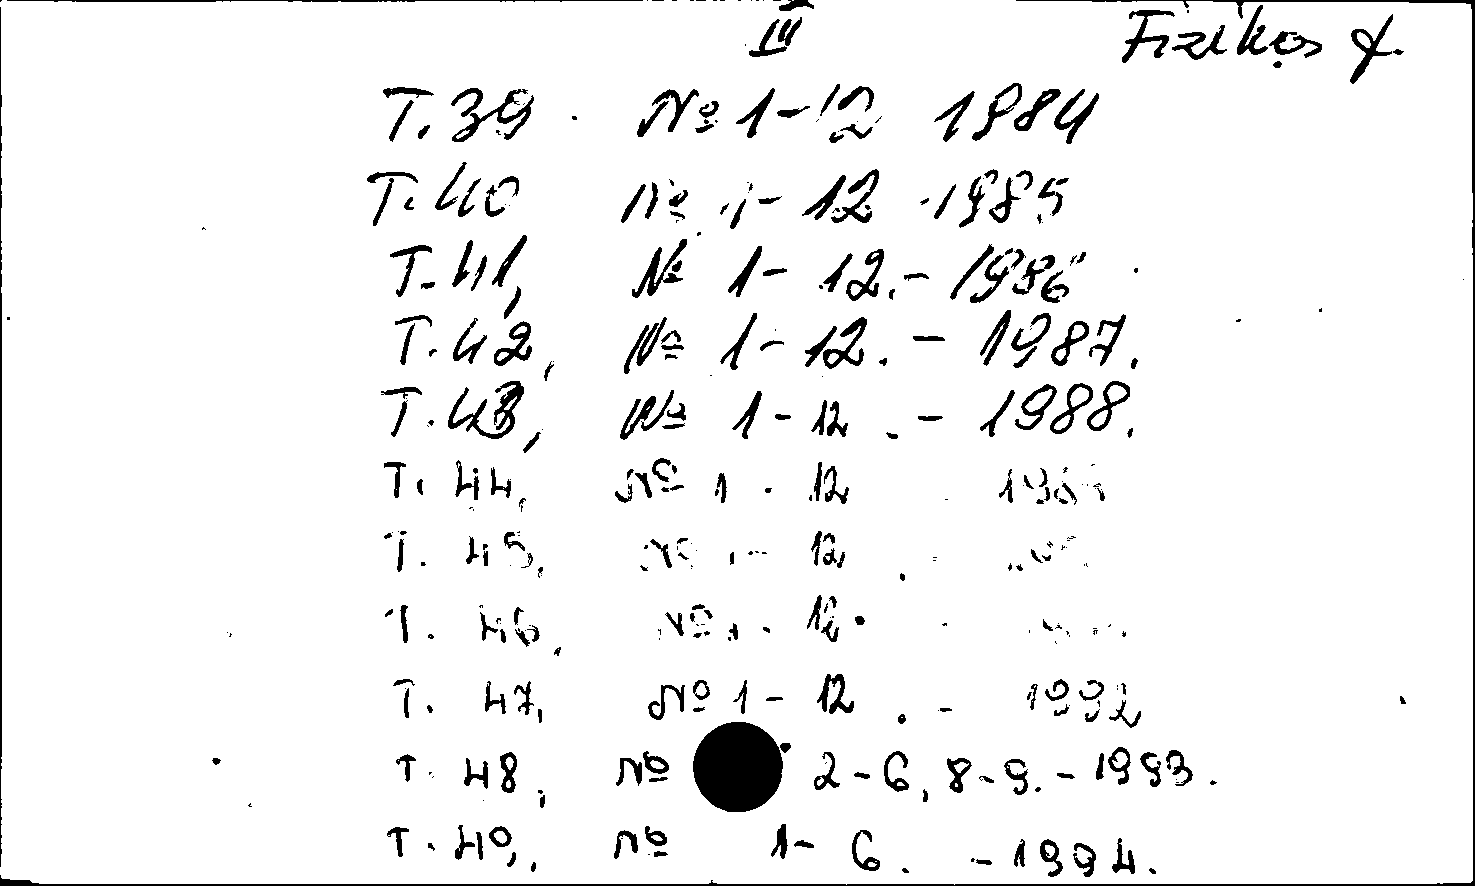 III Fizikos f.
T. 39 № 1-12 1984
T. 40 № 1-12 1985
T. 41, № 1-12. - 1986
T. 42, № 1-12. - 1987.
T. 43, № 1-12. - 1988.
T. 44, № 1-12
T. 45, № 1-12. -
T. 46, № 1-12. -
T. 47, № 1-12. - 1992
T. 48, № 2-6, 8-9. - 1993.
T. 49, № 1-6. - 1994.